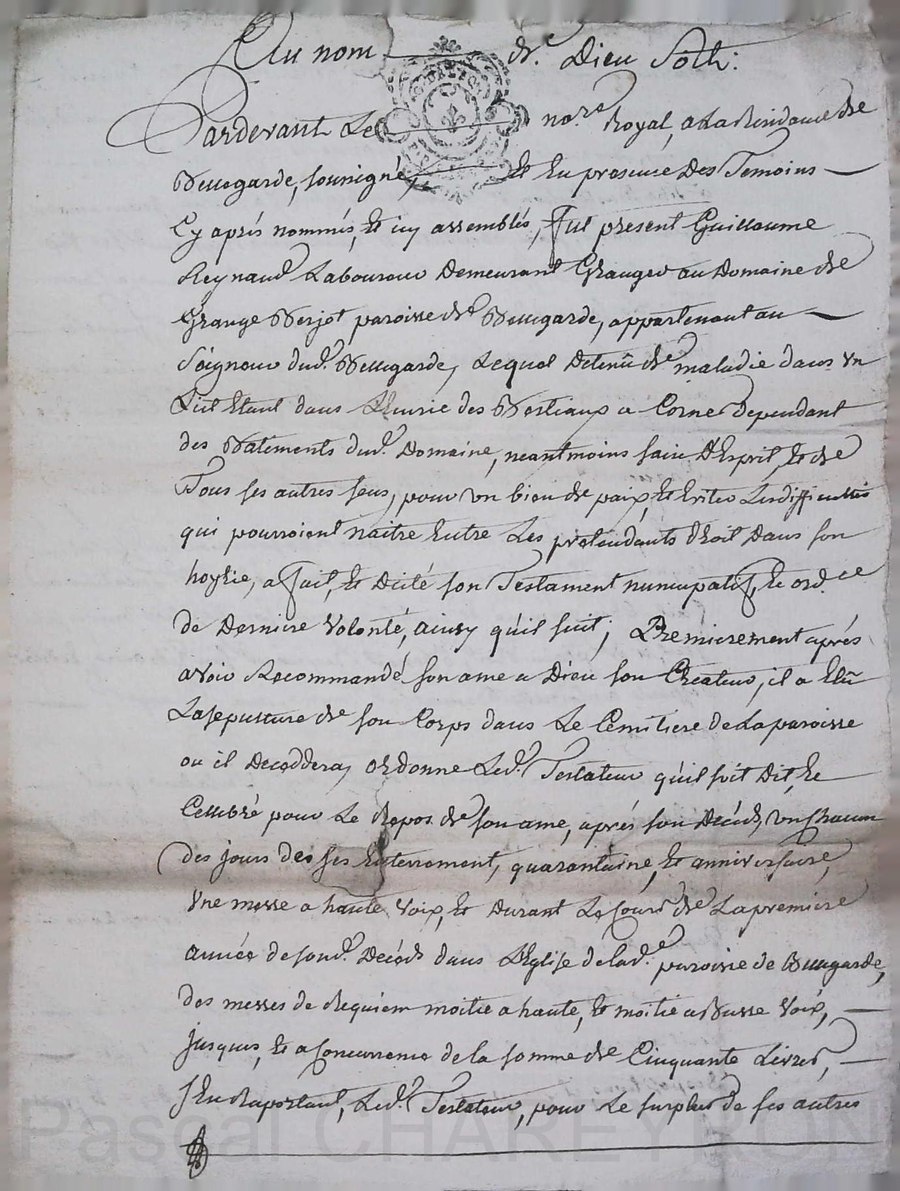 Au nom de Dieu Soit:
Pardevant Le no.re Royal, a La Residance de
Bellegarde, soussigné, Et En presence Des Temoins
Cy aprés nommés, Et icy assemblés, fut present Guillaume
Reynaud Laboureur Demeurant Granger au Domaine de
Grange Verjot paroisse de Bellegarde, appartenant au
Seigneur dud. Bellegarde, Lequel Detenü de maladie dans un
Lit Etant dans L'Ecurie des Bestiaux a Corne Dependant
des Batiments dud. Domaine, neantmoins sain D'Esprit, Et de
Tous ses autres sens, pour un bien de paix, Et Eviter Les difficultés
qui pourroient Naitre Entre Les pretendants droit Dans son
hoyrie, a fait, Et Dicté son Testament nuncupatif, Et ord.ce
de Derniere Volonté, ainsy qu'il suit; Premierement aprés
avoir Recommandé son ame a Dieu son Createur, il a Elü
La sepulture de son Corps dans Le Cemitiere de La paroisse
ou il Deceddera, ordonne Led. Testateur qu'il soit Dit, Et
Cellebré pour Le Repos de son ame, aprés son Décéds, un chacun
des jours des ses Enterrement, quarantaine, Et anniversaire,
Une messe a haute Voix, Et Durant Le Cours de La premiere
année de sond. Décéds dans L'Eglise de lad. paroisse de Bellegarde,
des messes de Requiem moitié a haute, Et moitié a Basse Voix,
jusques, Et a Concurrence de la somme de Cinquante Livres,
S'En Raportant, Led. Testateur, pour Le surplus de ses autres
Pascal CHAREYRON